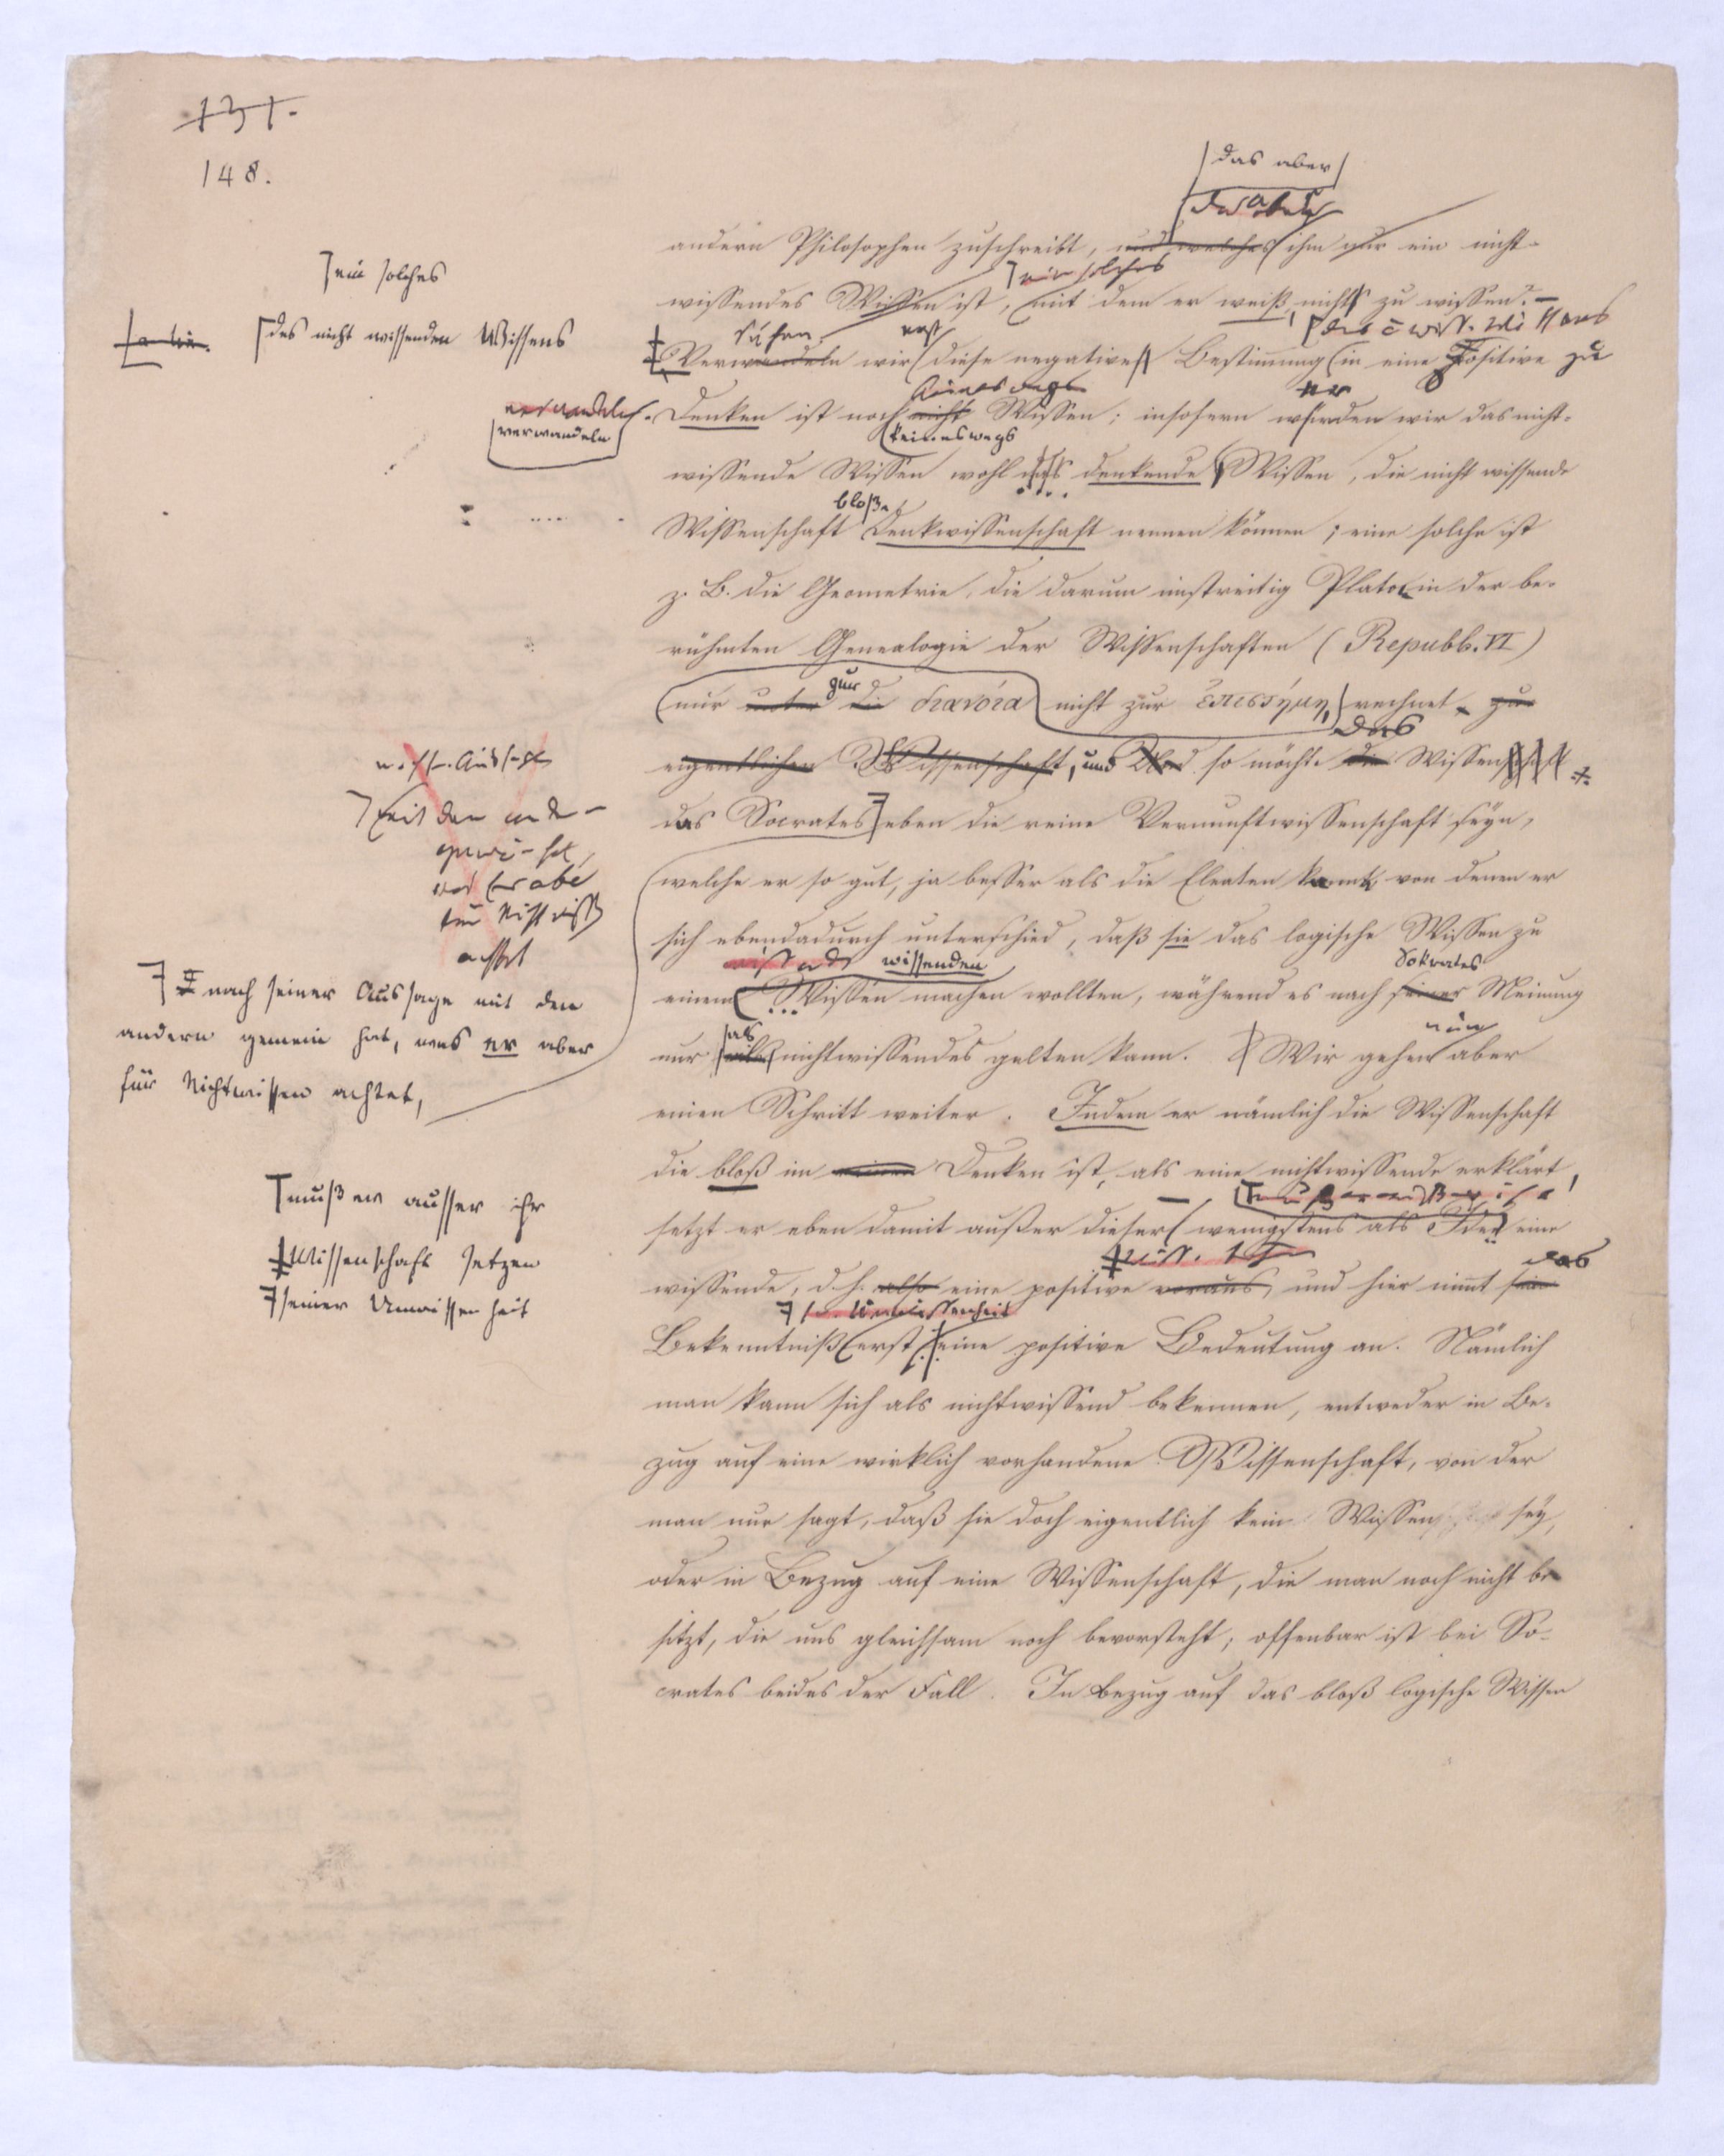 131.
148.
das aber
andern Philosophen zuschreibt, und welches ihm nur ein nicht-
ein solches
wissendes Wissen ist, mit dem er weiß, nichts zu wissen. –
des nicht wissenden Wissens
Verwandeln wir diese negative Bestimmung in eine Positive zu
verwandeln
keineswegs
Denken ist noch nicht Wissen; insofern würden wir das nicht-
wissende Wissen wohl das denkende Wissen, die nicht wissende
bloße
Wissenschaft Denkwissenschaft nennen können; eine solche ist
z. B. die Geometrie, die darum unstreitig Plato in der be-
rühmten Genealogie der Wissenschaften (Republ. VI)
zur
nur unter die διανοια nicht zur επιστημη, rechnet zur
das
eigentlichen Wissenschaft, und so möchte die Wissenschaft
das Socrates eben die reine Vernunftwissenschaft seyn,
welche er so gut, ja besser als die Eleaten kannte, von denen er
sich ebendadurch unterschied, daß sie das logische Wissen zu
wissenden
Sokrates
einem Wissen machen wollten, während es nach seiner Meinung
nach seiner Aussage mit den
andern gemein hat, was er aber
für Nichtwissen achtet,
als
nun
nur als nichtwissendes gelten kann. Wir gehen aber
einen Schritt weiter. Indem er nämlich die Wissenschaft
die bloß im reinen Denken ist, als eine nichtwissende erklärt,
muß er ausser ihr
Wissenschaft setzen
seiner Unwissenheit
setzt er eben damit außer dieser wenigstens als Idee eine
das
wissende, d. h. also eine positive voraus, und hier nimmt sein
Bekenntniß erst eine positive Bedeutung an. Nämlich
man kann sich als nichtwissend bekennen, entweder in Be-
zug auf eine wirklich vorhandene Wissenschaft, von der
man nur sagt, daß sie doch eigentlich kein Wissen sey,
oder in Bezug auf eine Wissenschaft, die man noch nicht be
sitzt, die uns gleichsam noch bevorsteht; offenbar ist bei So-
crates beides der Fall. In Bezug auf das bloß logische Wissen